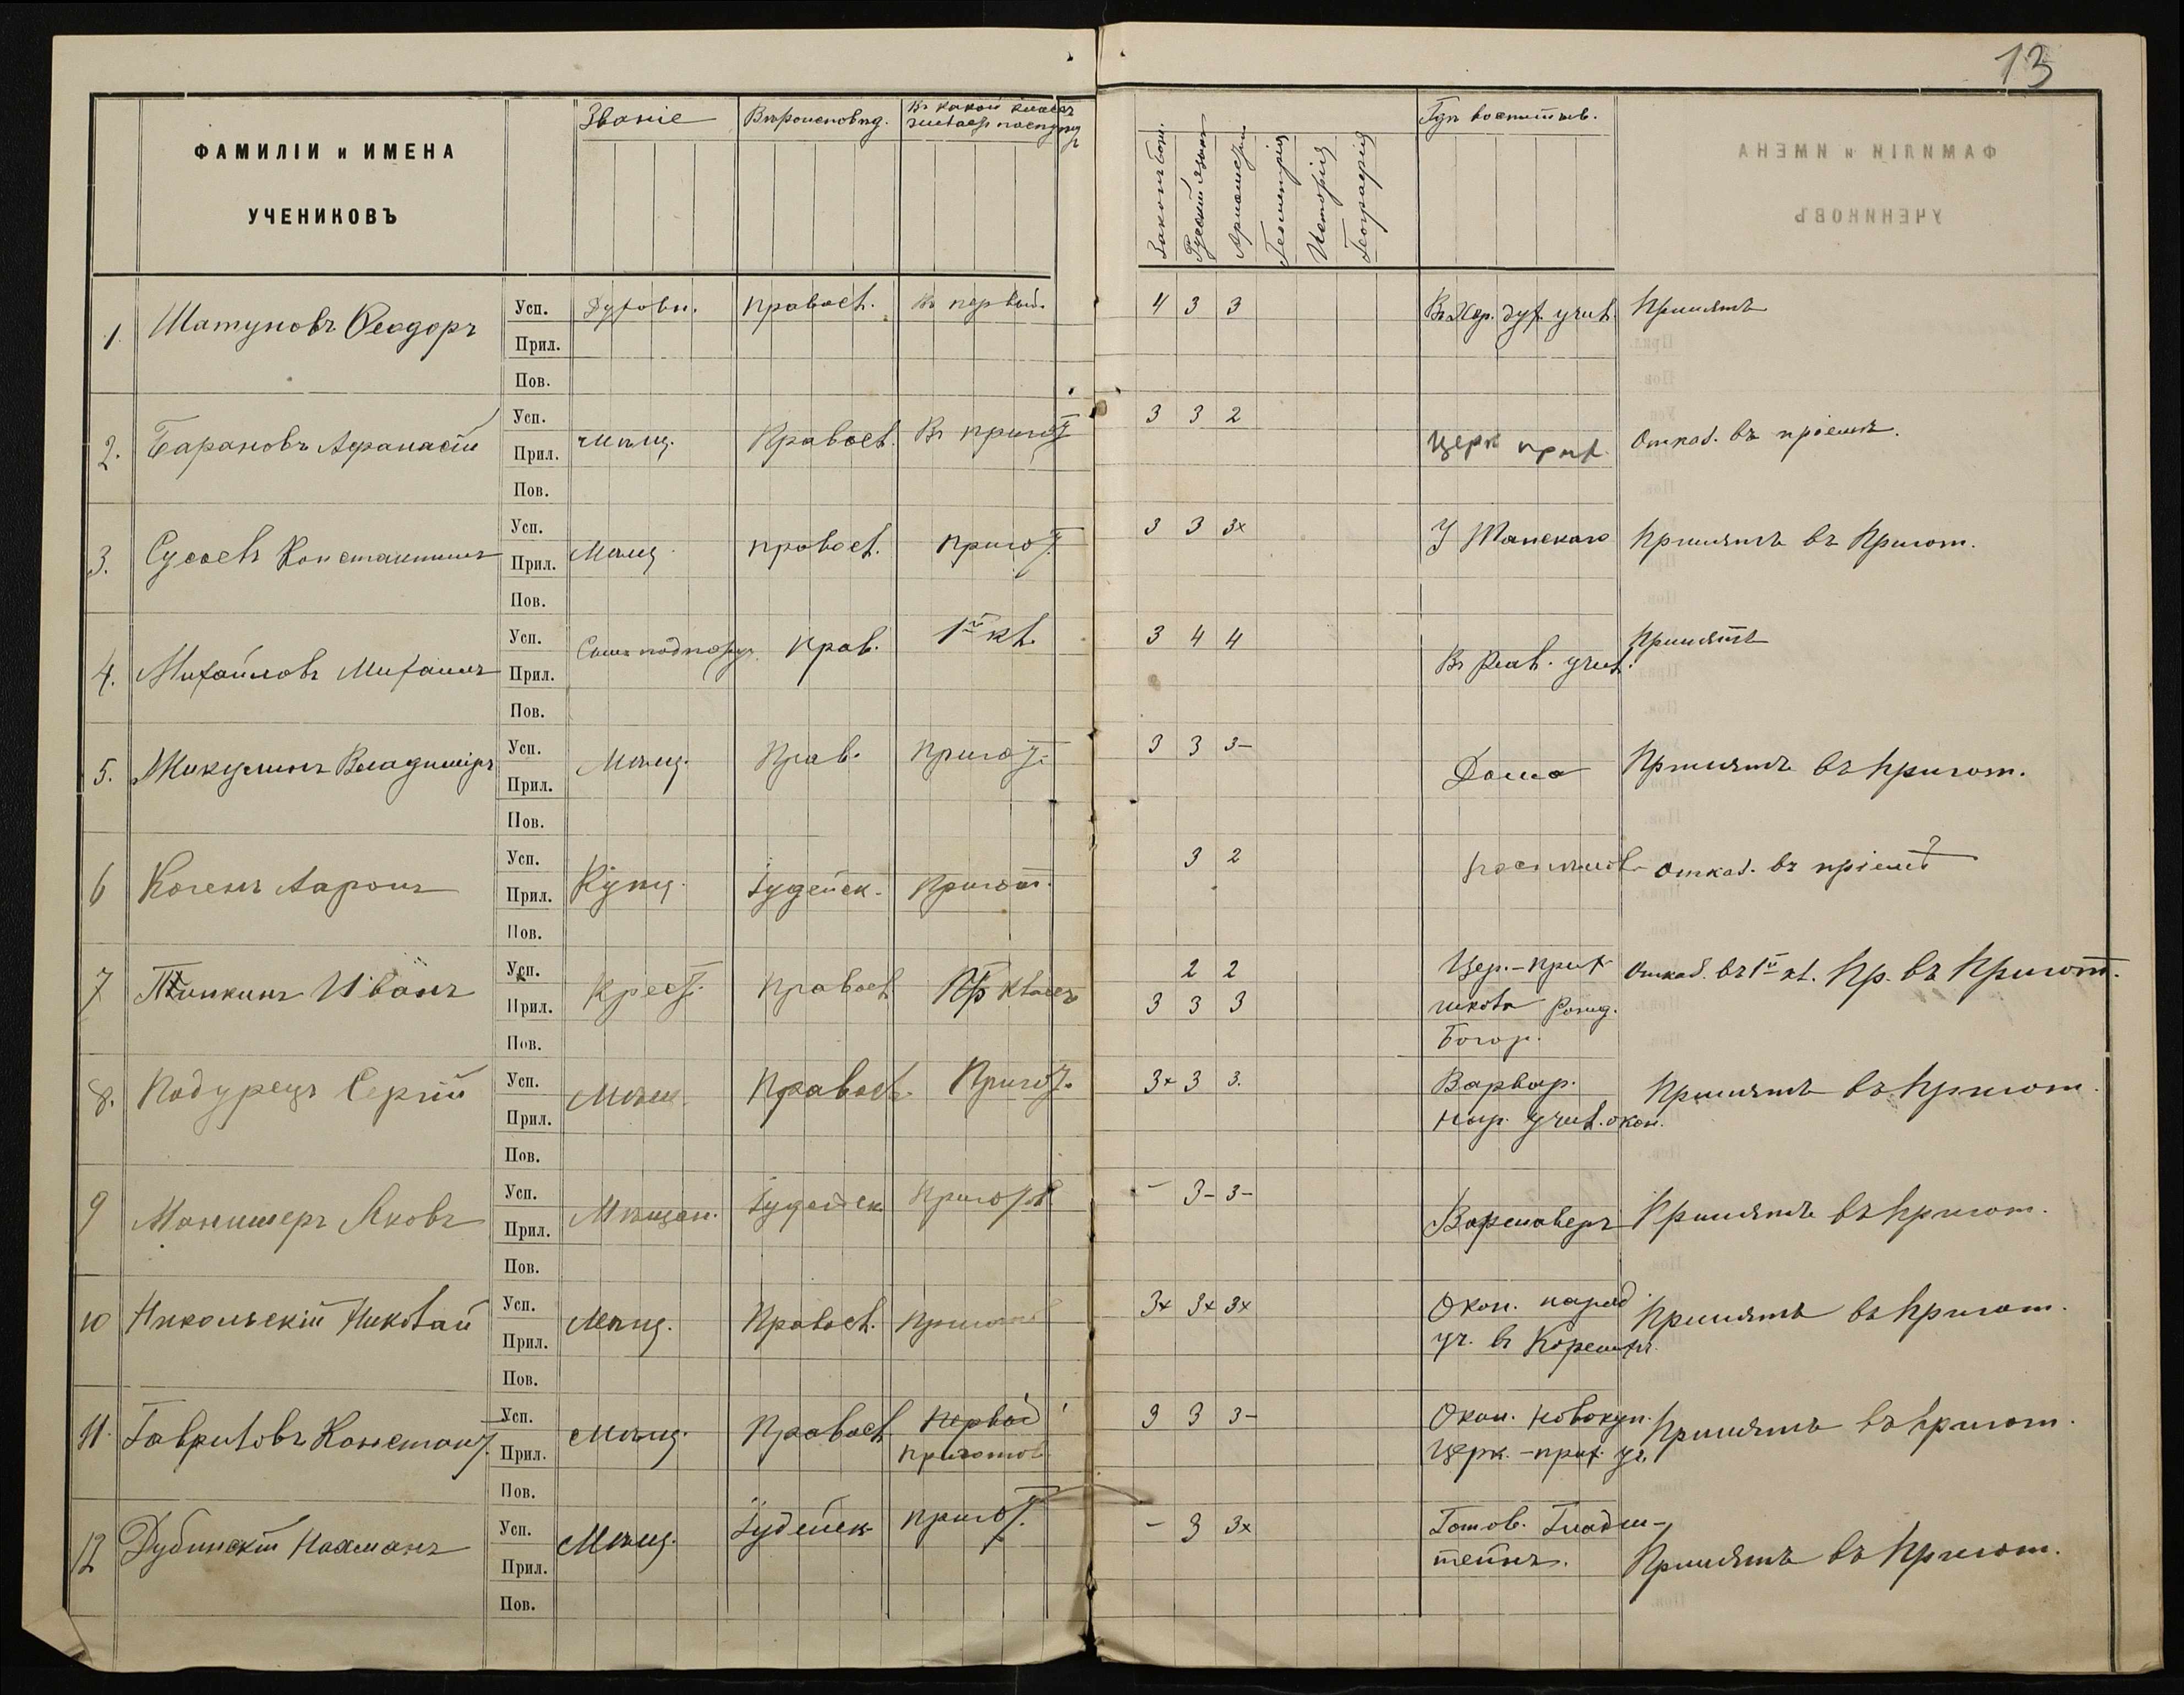 13
ФАМИЛІИ и ИМЕНА
УЧЕНИКОВЪ
Званіе
Вѣроисповѣд.
Въ какой классъ
желаетъ поступить
Законъ Бож.
Русскій языкъ
Арифметика
Геометрія
Исторія
Географія
Гдѣ воспитыв.
1. Шатуновъ Ѳеодоръ Усп. Духовн. Правосл. Въ первый. 4 3 3 Въ Хар. дух. учил. Принятъ
Прил.
Пов.
2. Барановъ Афанасій Усп. 3 3 2
Прил. Мѣщ. Правосл. Въ пригот Церк прих. Отказ. въ пріемѣ.
Пов.
3. Сусоевъ Константинъ Усп. 3 3 3+
Прил. Мѣщ. Правосл. Пригот. У Манскаго Принятъ въ Пригот.
Пов.
4. Михайловъ Михаилъ Усп. Сынъ подпоруч. Прав. 1й кл. 3 4 4 Въ Реал. учил. Принятъ
Прил.
Пов.
5. Микулинъ Владиміръ Усп. 3 3 3-
Прил. Мѣщ. Прав. Пригот. Дома Принятъ въ Пригот.
Пов.
6 Когенъ Ааронъ Усп. 3 2
Прил. Купц. Іудейск. Пригот. Отказ. въ пріемѣ
Пов.
7 Иванъ Усп. 2 2 Цер.-прих Отказ. въ 1й кл. Пр. въ Пригот.
Прил. Крест. Правосл. классъ 3 3 3 школа Рожд.
Пов. Богор.
8. Подурецъ Сергѣй Усп. Мѣщ. Правосл. Пригот. 3+ 3 3. Варвар. Принятъ въ Пригот.
Прил. нар. учил. окон.
Пов.
9 Маншеръ Яковъ Усп. Мѣщан. Іудейск Пригот. - 3- 3-
Прил. Варшаверъ Принятъ въ Пригот.
Пов.
10 Никольскій Николай Усп. Мѣщ. Правосл. Пригот 3+ 3+ 3+ Окон. народ. Принятъ въ Пригот.
Прил. уч. въ
Пов.
11. Гавриловъ Констант. Усп. Мѣщ. Правосл Первый 3 3 3- Окон. Новокуп. Принятъ въ Пригот.
Прил. Приготов. Церк.-прих. уч.
Пов.
12 Дубинскій Нахманъ Усп. Мѣщ. Іудейск Пригот. - 3 3+ Готов. Гладш-
Прил. тейнъ. Принятъ въ Пригот.
Пов.